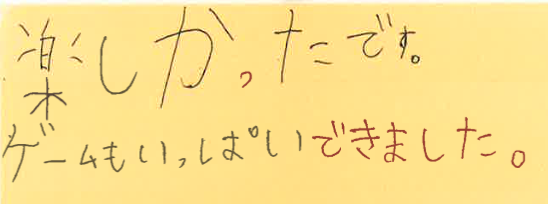 楽しかったです。
ゲームもいっぱいできました。